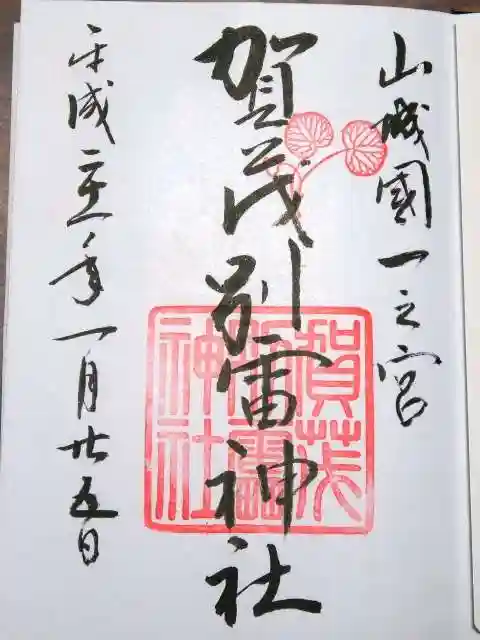 山城國一之宮
賀茂別雷神社
平成 年一月廿五日
賀茂
別雷
神社